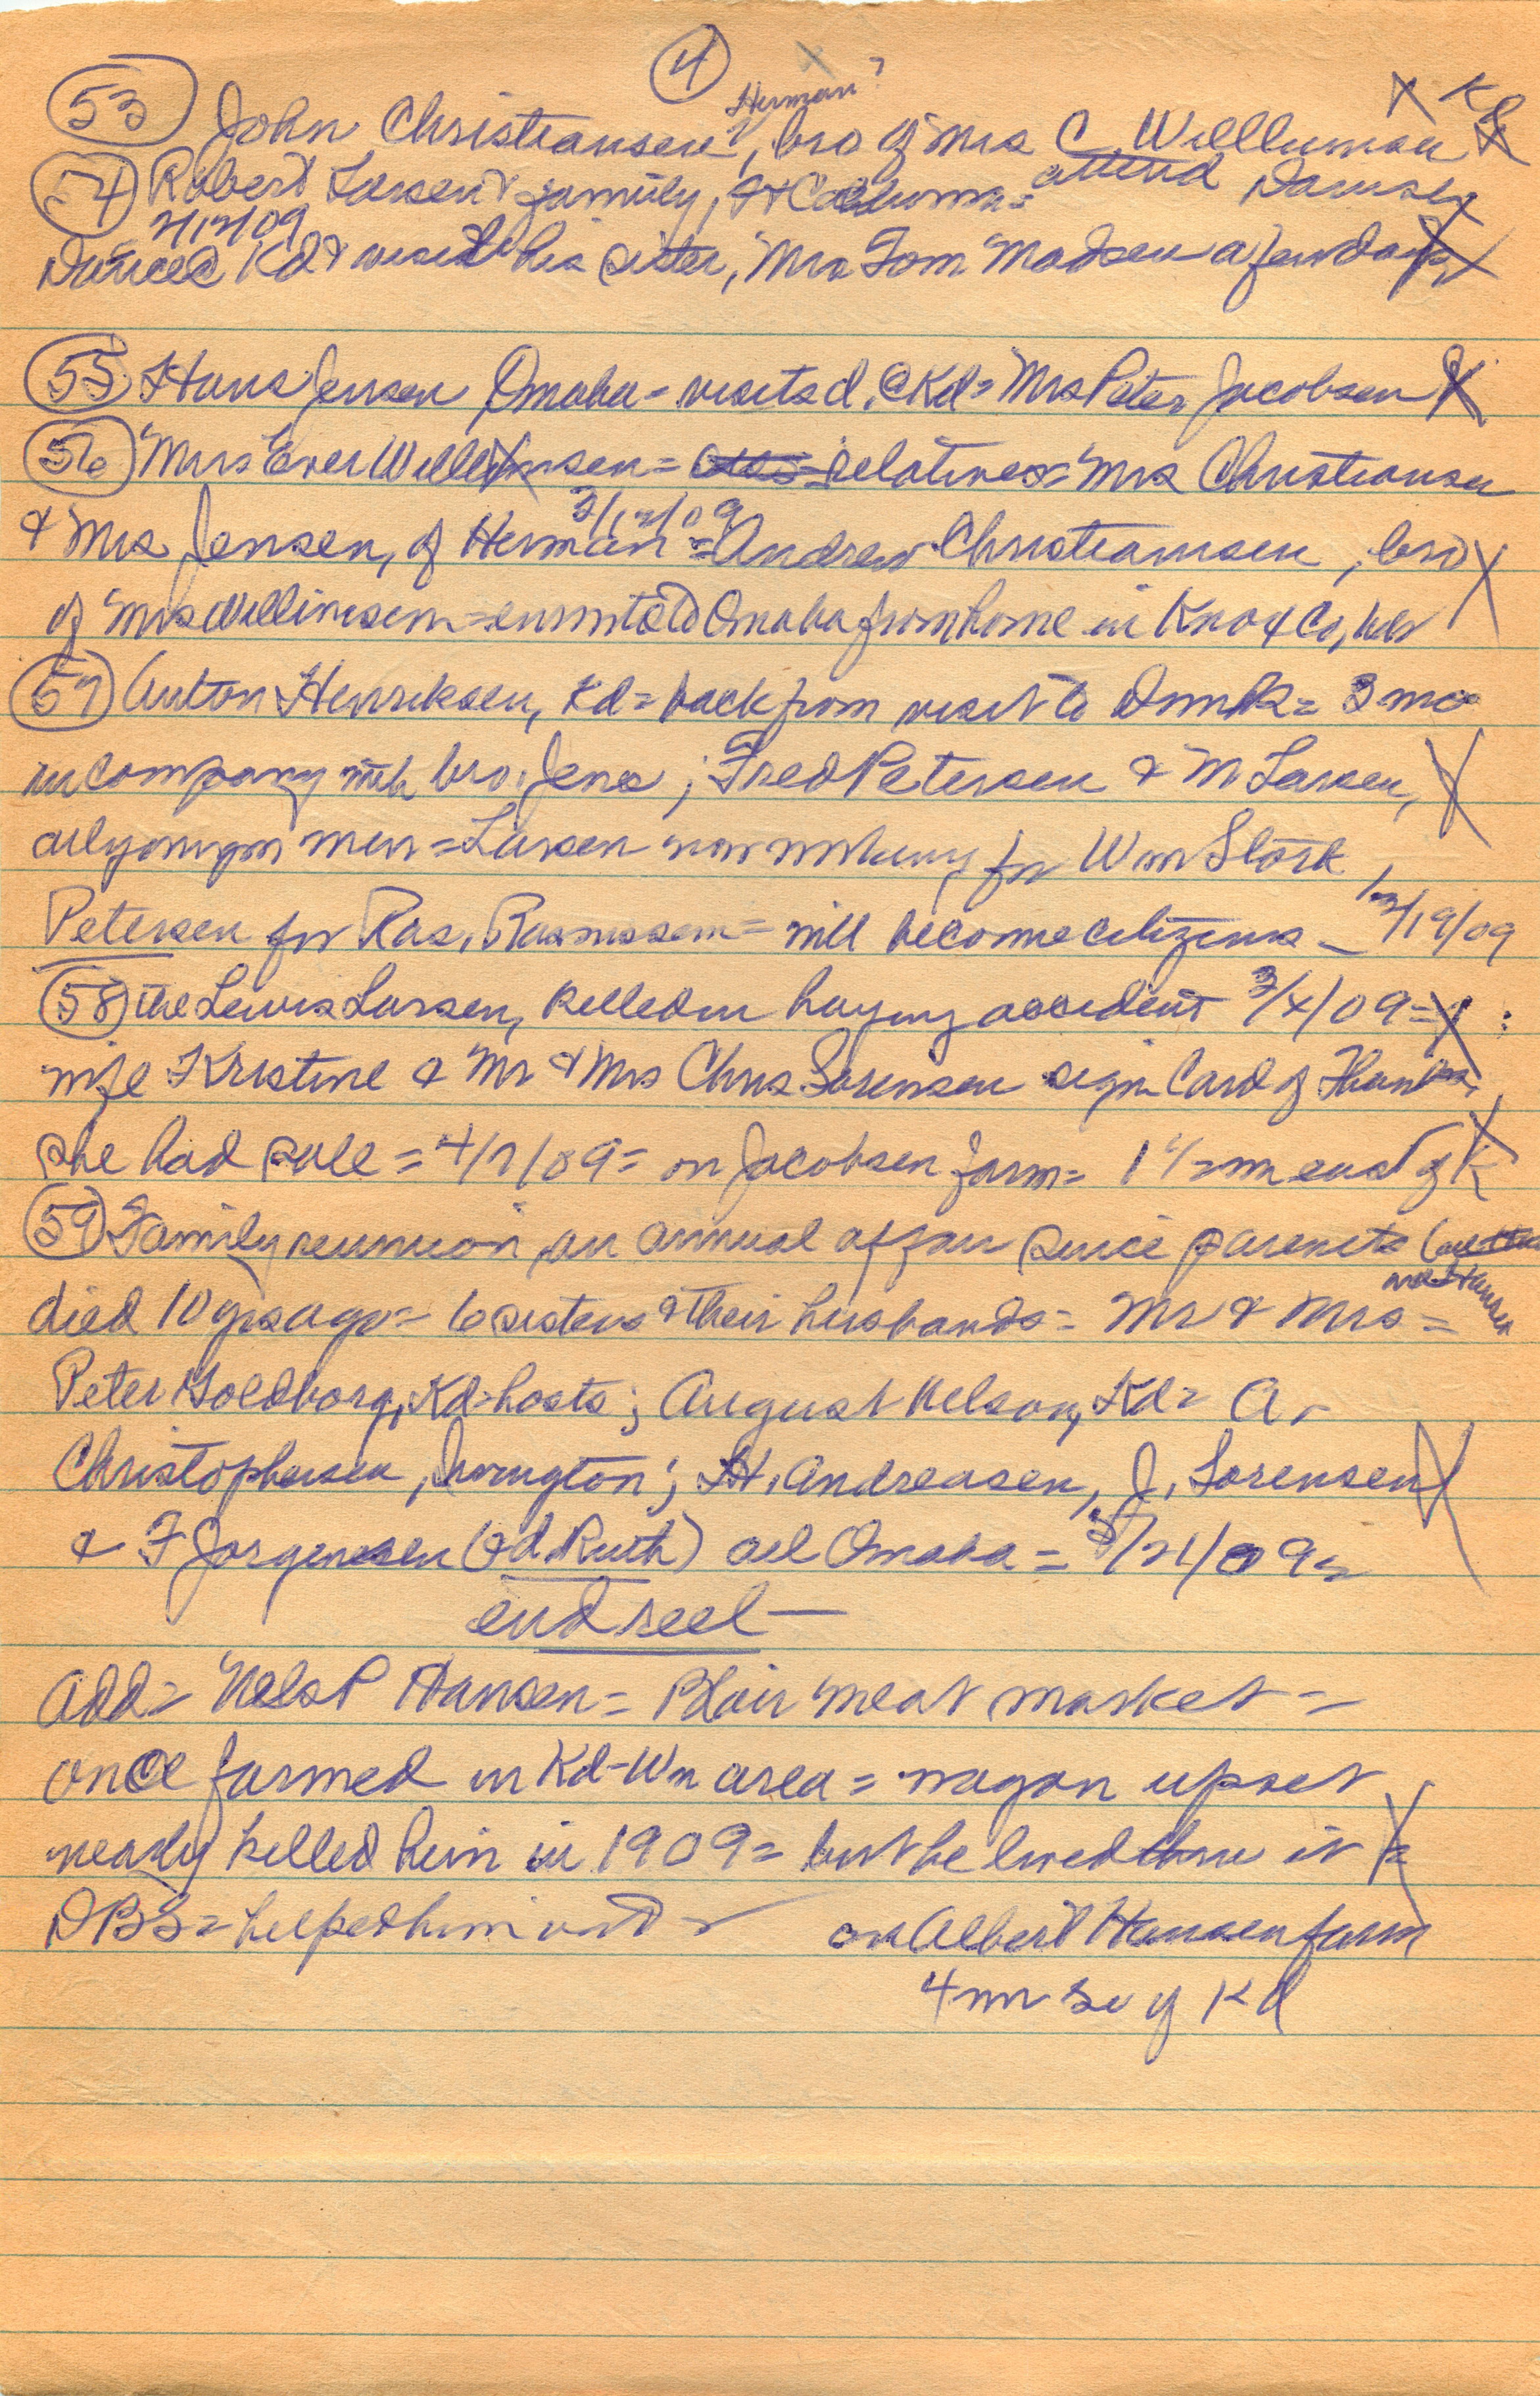 4
Herman?
53 John Christiansen?, bro of Mrs C Willumsen
54 Robert Larsen & family, Ft Calhoun = attend Danish
2/12/09
Dance @ Kd & visit his sister, Mrs Tom Madsen a few days
55 Hans Jensen Omaha = visits d. @ Kd = Mrs Peter Jacobsen
56 Mrs Ever Willumsen = relatives = Mrs Christiansen
3/12/09
& Mrs Jensen, of Herman = Andrew Christiansen, bro
of Mrs Willimsen = enroute to Omaha from home in Knox Co, Neb
57 Anton Henriksen, Kd = back from visit to Dnmk = 3 mo
in company with bro. Jens; Fred Petersen & M Larsen,
all young men = Larsen now working for Wm Stork,
Petersen for Ras. Rasmussen = will become citizens — 3/19/09
58 the Lewis Larsen, killed in haying accident 3/4/09 =
wife Kristine & Mr & Mrs Chris Sorensen sign Card of Thanks,
she had sale = 4/7/09 = on Jacobsen farm = 1 1/2 m east of K
59 Family reunion an annual affair since parents
died 10 yrs ago = 6 sisters & their husbands = Mr & Mrs =
Peter Goldborg, Kd = hosts; August Nelson, Kd = A.
Christophersen, Irvington; H. Andreasen, J. Sorensen
& F Jorgensen (& d. Ruth) all Omaha = 5/21/09 =
end reel —
Add = Nels P Hansen = Blair meat market =
once farmed in Kd-Wn area = wagon upset
nearly killed him in 1909 = but he lived thru it =
DBS = helped him out =
on Albert Hansen farm
4 m sw of Kd